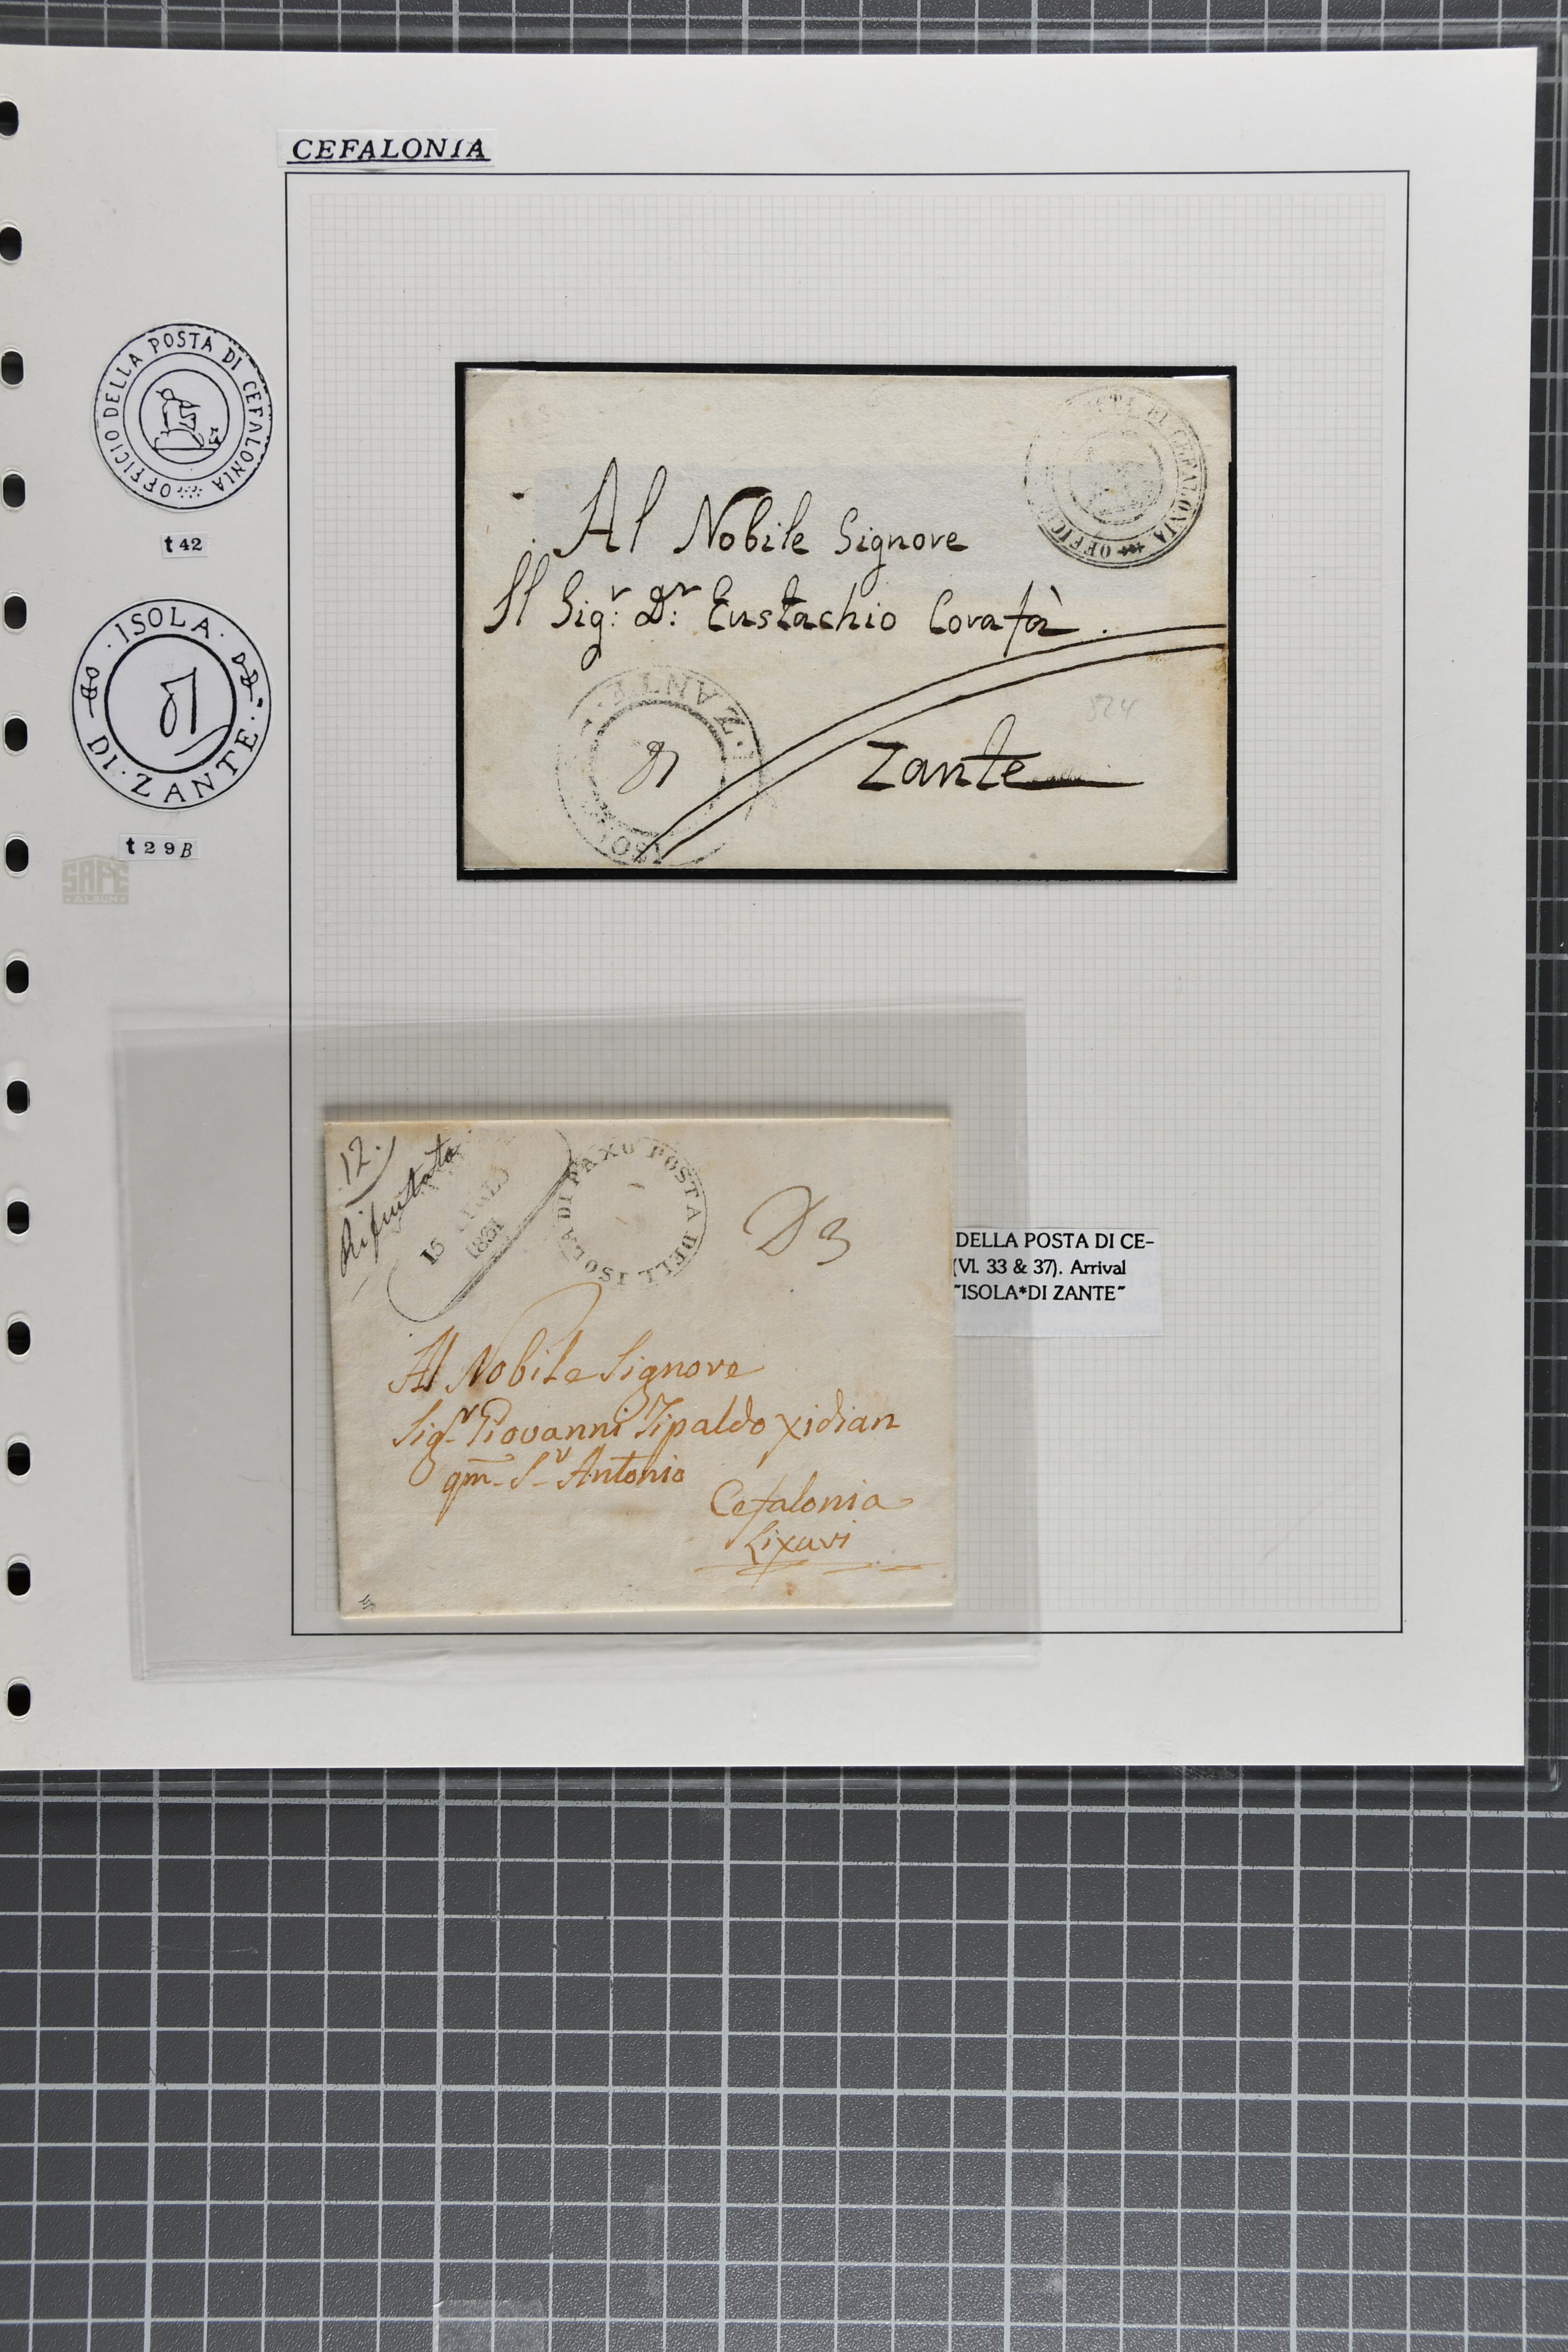 CEFALONIA
OFFICIO DELLA POSTA DI CEFALONIA
t 42
· ISOLA · DI · ZANTE ·
t 29B
SAFE
· ALBUM ·
POSTA DI CEFALONIA OFFICI
Al Nobile Signore
Il Sigr: Dr: Eustachio Corafà.
· ZANTE · ISO
Zante
824
12.
Rifiutata
15
1831
ISOLA DI PAXO POSTA DELL
D 3
Al Nobile Signore
Sigr Giovanni Tipaldo Xidian
qm. Sr Antonio
Cefalonia
Lixuri
DELLA POSTA DI CE-
(Vl. 33 & 37). Arrival
"ISOLA*DI ZANTE"